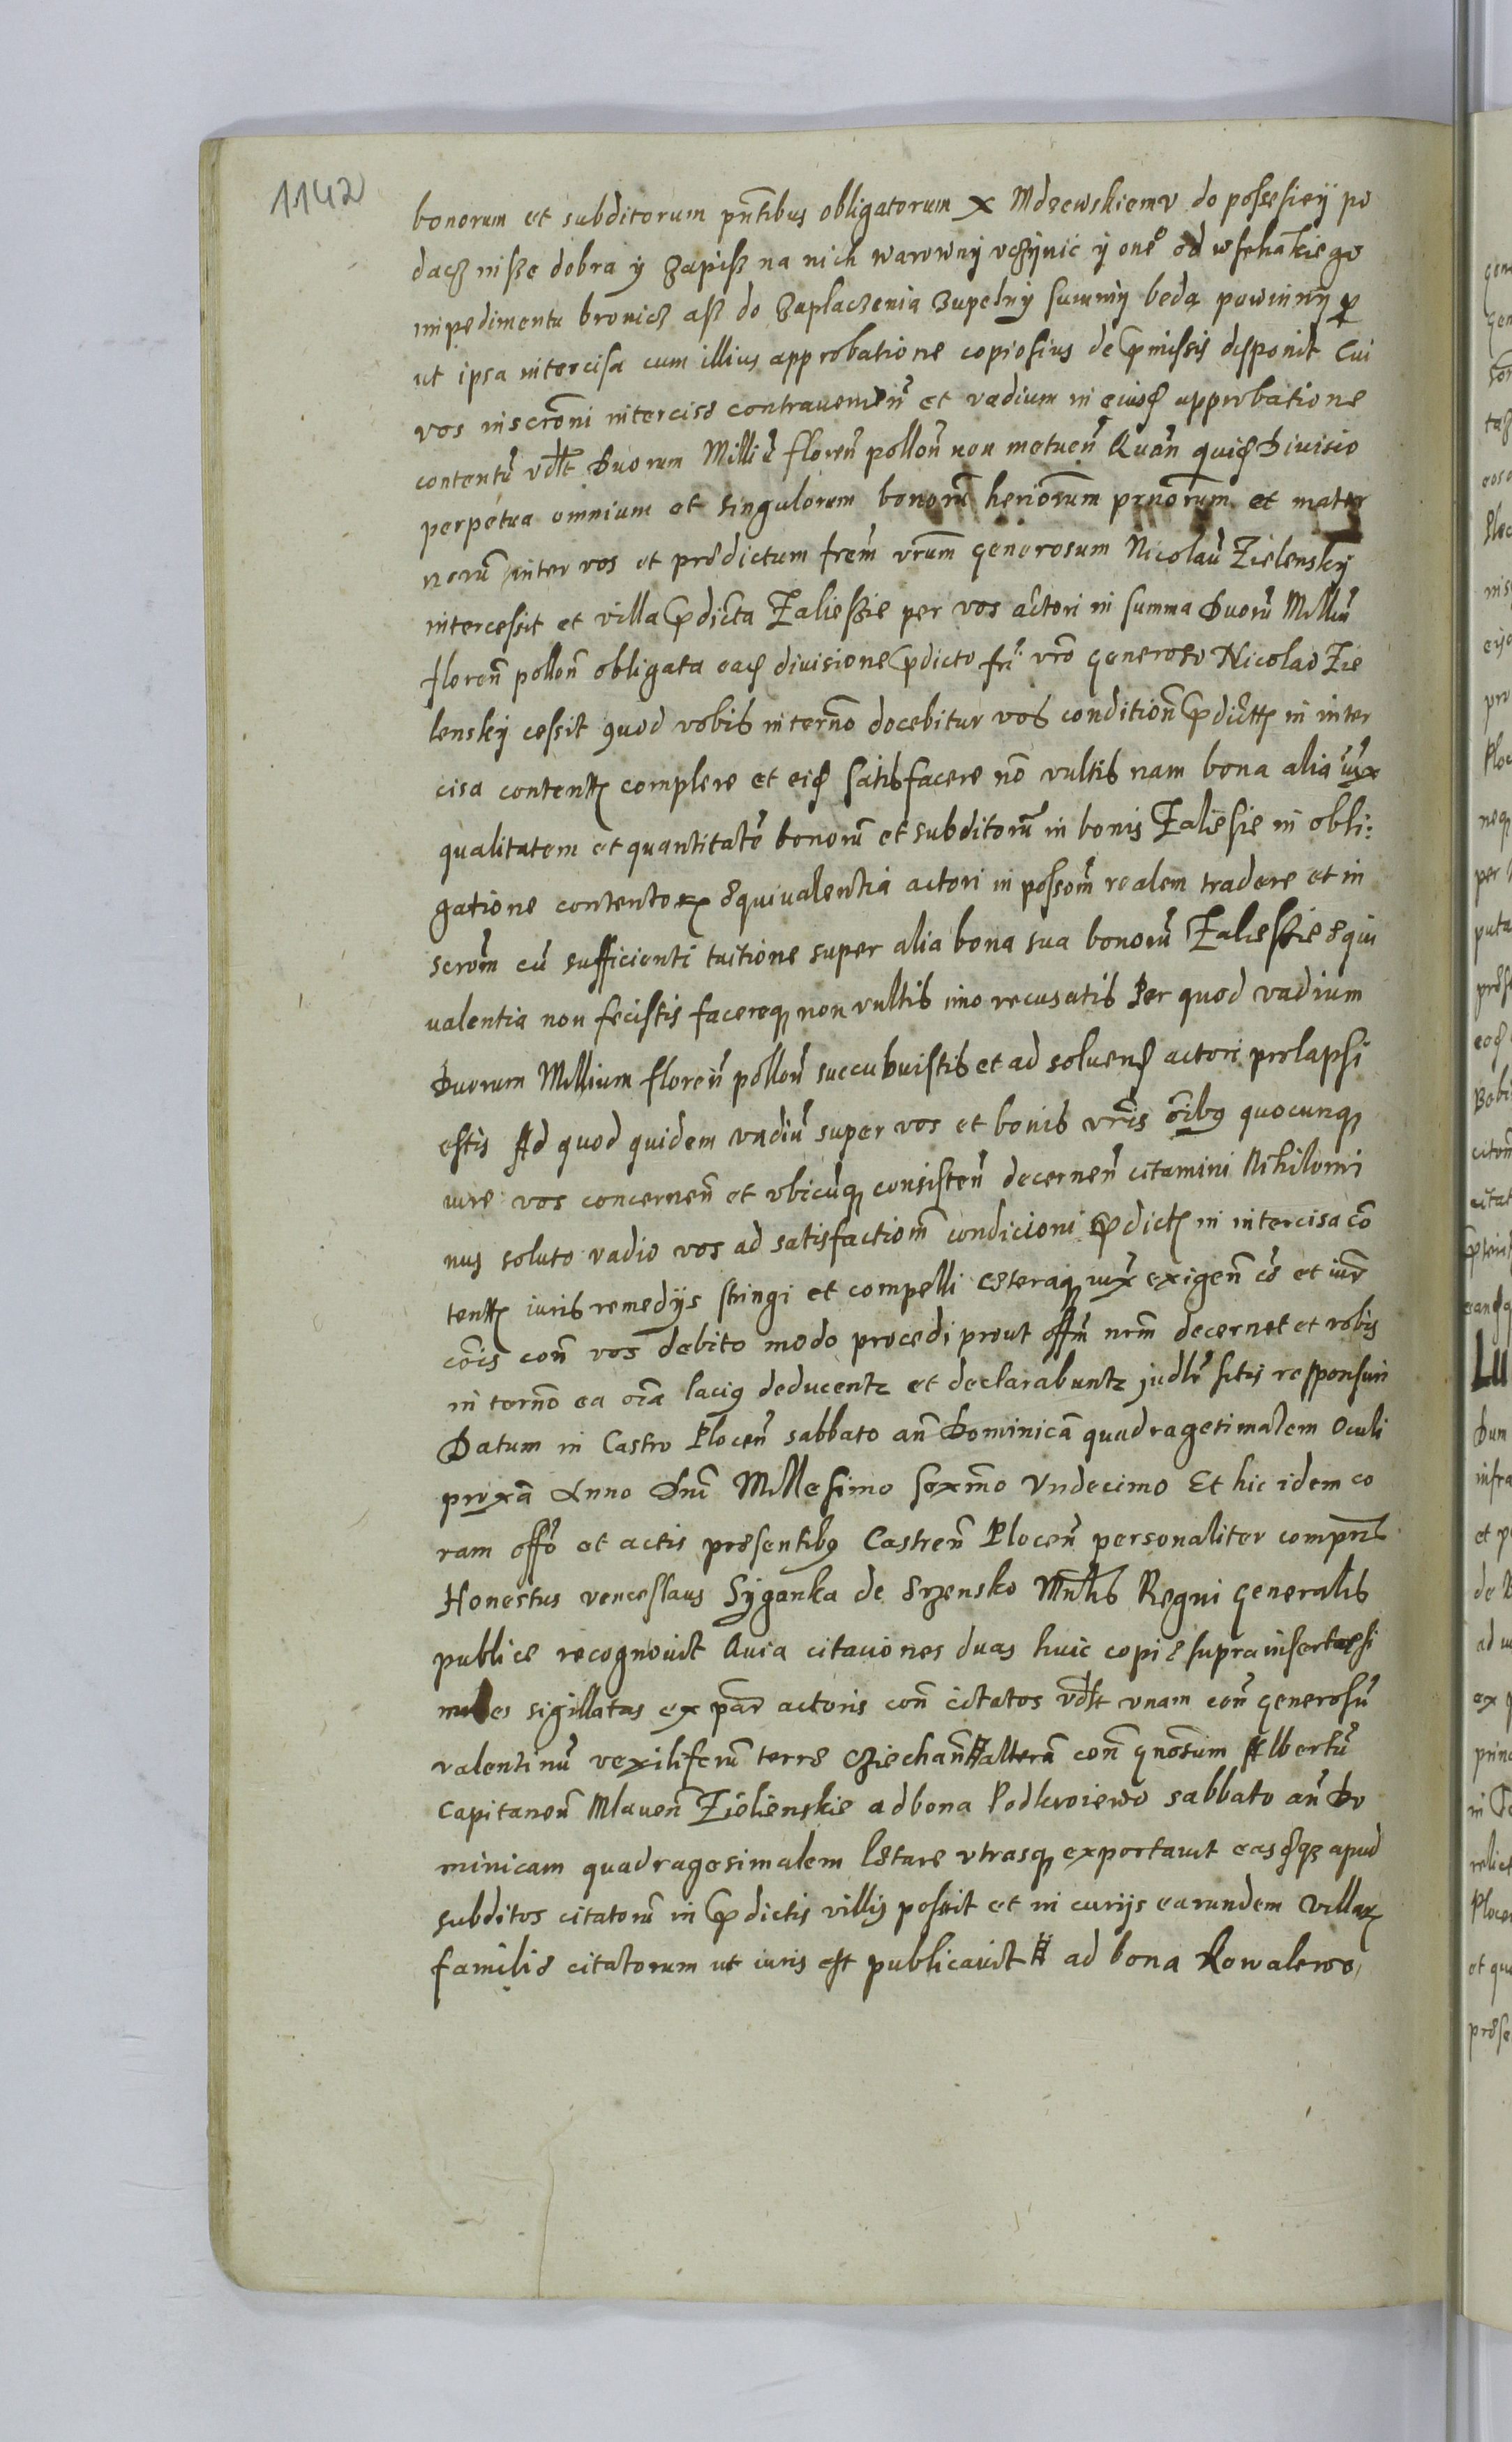 1142
bonorum et subditorum pñtibus obligatorum X Mdzewskiemu do possesiey po
dacz nisze dobra y Zapisz na nich warowny vczynic y one° od wselhakiego
impedimentu bronicz asz do Zaplaczenia Zupelny summy beda powinny
ut ipsa intercisa cum illius approbatione copiosius de pmissis disponit Cui
vos inscroni intercise contrauenien̄ et vadium in eiusd approbatione
contentū vdlt Duorum Milliū floren̄ pollon̄ non metuen̄ Quan̄ quid Diuisio
perpetua omnium et singulorum bonorū heriorum prnorum et mater
norū inter vos et predictum frem vrum generosum Nicolaū Zielensky
intercessit et villa pdicta Zalieszie per vos actori in summa Duorū Milliū
floren̄ pollon̄ obligata ead diuisione pdicto fri vro generoso Nicolao Zie
lensky cessit quod vobis in termō docebitur vos condition̄ pdictt in inter
cisa contentt complere et eid satisfacere nō vultis nam bona alia iux
qualitatem et quantitatē bonorū et subditorū in bonis Zaliesie in obli:
gatione contentor equiualentia actori in possom̄ realem tradere et in
scrom̄ cū sufficienti tuitione super alia bona sua bonorū Zalieszie equi
ualentia non fecistis facereq non vultis imo recusatis Per quod vadium
Duorum Millium floren̄ pollon̄ succubuistis et ad soluend actori prolapsi
estis Ad quod quidem vadiū super vos et bonis vris oībq quocunq
iure vos concernen̄ et vbicūq consisten̄ decernen̄ citamini Nihilomi
nus soluto vadio vos ad satisfactiom̄ condicioni pdict in intercisa cō
tentt iuris remedijs stringi et compelli ceteraq iux exigen̄ cē et iur̄
cōis con̄ vos debito modo procedi prout offm̄ nrm̄ decernet et vobis
in termō ea oīa laciq deducentz et declarabuntz judlr sitis responsuri
Datum in Castro Plocen̄ sabbato an̄ Dominicā quadragesimalem Oculi
proxā Anno Dnī Millesimo Sexmo Vndecimo Et hic idem co
ram offō et actis presentibq Castren̄ Plocen̄ personaliter compns
Honestus venceslaus Syganka de Srzensko Mnlis Regni generalis
publice recognouit Quia citationes duas huic copie supra insertae si
miles sigillatas ex par̄ actoris con̄ citatos vdlt vnam con̄ generosū
valentinū vexiliferū terre Cziechan̄ alterā con̄ gnosum Albertū
Capitaneū Mlauen̄ Zielienskie ad bona Podkroiewo sabbato an̄ Do
minicam quadragesimalem Letare vtrasq exportauit easdqz apud
subditos citatorū in pdictis villis posuit et in curijs earundem villar
familie citatorum ut iuris est publicauit ad bona Kowalewo